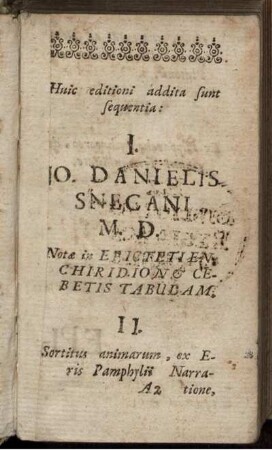 Huic editioni addita ſunt
ſequentia:
I.
JO. DANIELIS
SNECANI,
M. D.
Notæ in EPICTETI EN-
CHIRIDION & CE-
BETIS TABULAM.
II.
Sortitus animarum, ex E-
ris Pamphylii Narra-
A2 tione,